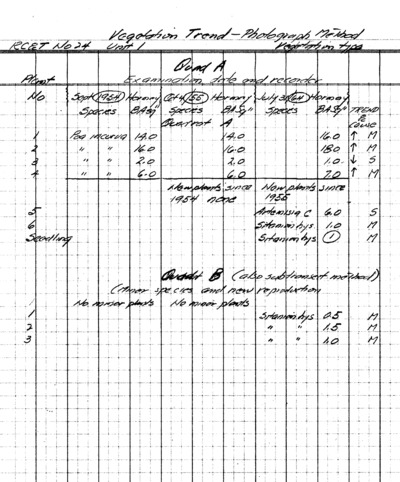 Vegetation Trend - Photograph Method
RCET No 24 Unit 1 Vegetation type
Quad A
Plant Examination date and recorder
No Sept 1954 Hormay Oct 4 55 Hormay July 64 Hormay TREND
Species BASq" Species BASq" Species BASq" &
Quadrat A CAUSE
1 Poa 14.0 14.0 16.0 ↑ M
2 " " 16.0 16.0 18.0 ↑ M
3 " " 2.0 2.0 1.0 ↓ S
4 " " 6.0 6.0 7.0 ↑ M
New plants since New plants since
1954 none 1955
5 Artemisia C 6.0 S
6 Sitanion hys 1.0 M
Seedling Sitanion hys 1 M
Quadrat B (also subtransect method)
(Minor species and new reproduction
No minor plants No minor plants
1 Sitanion hys 0.5 M
2 " " 1.5 M
3 " " 1.0 M